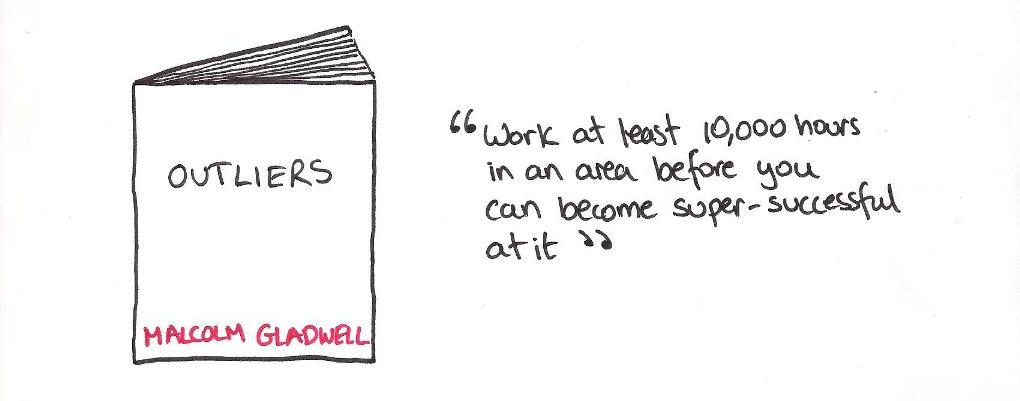 OUTLIERS
MALCOLM GLADWELL
“Work at least 10,000 hours
in an area before you
can become super-successful
at it”